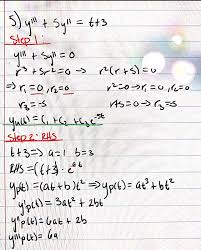 5) y''' + 5y'' = t+3
Step 1:
y''' + 5y'' = 0
r³ + 5r² = 0 → r²(r+5) = 0
⇒ r₁ = 0, r₂ = 0 r² = 0 → r₁ = 0, r₂ = 0
r₃ = -5 r+5 = 0 → r₃ = -5
yₕ(t) = C₁ + C₂ + C₃e⁻⁵ᵗ
Step 2: RHS
t+3 ⇒ a=1 b=3
RHS = (t+3) · e⁰ᵗ
yp(t) = (at+b)t² ⇒ yp(t) = at³ + bt²
y'p(t) = 3at² + 2bt
y''p(t) = 6at + 2b
y'''p(t) = 6a